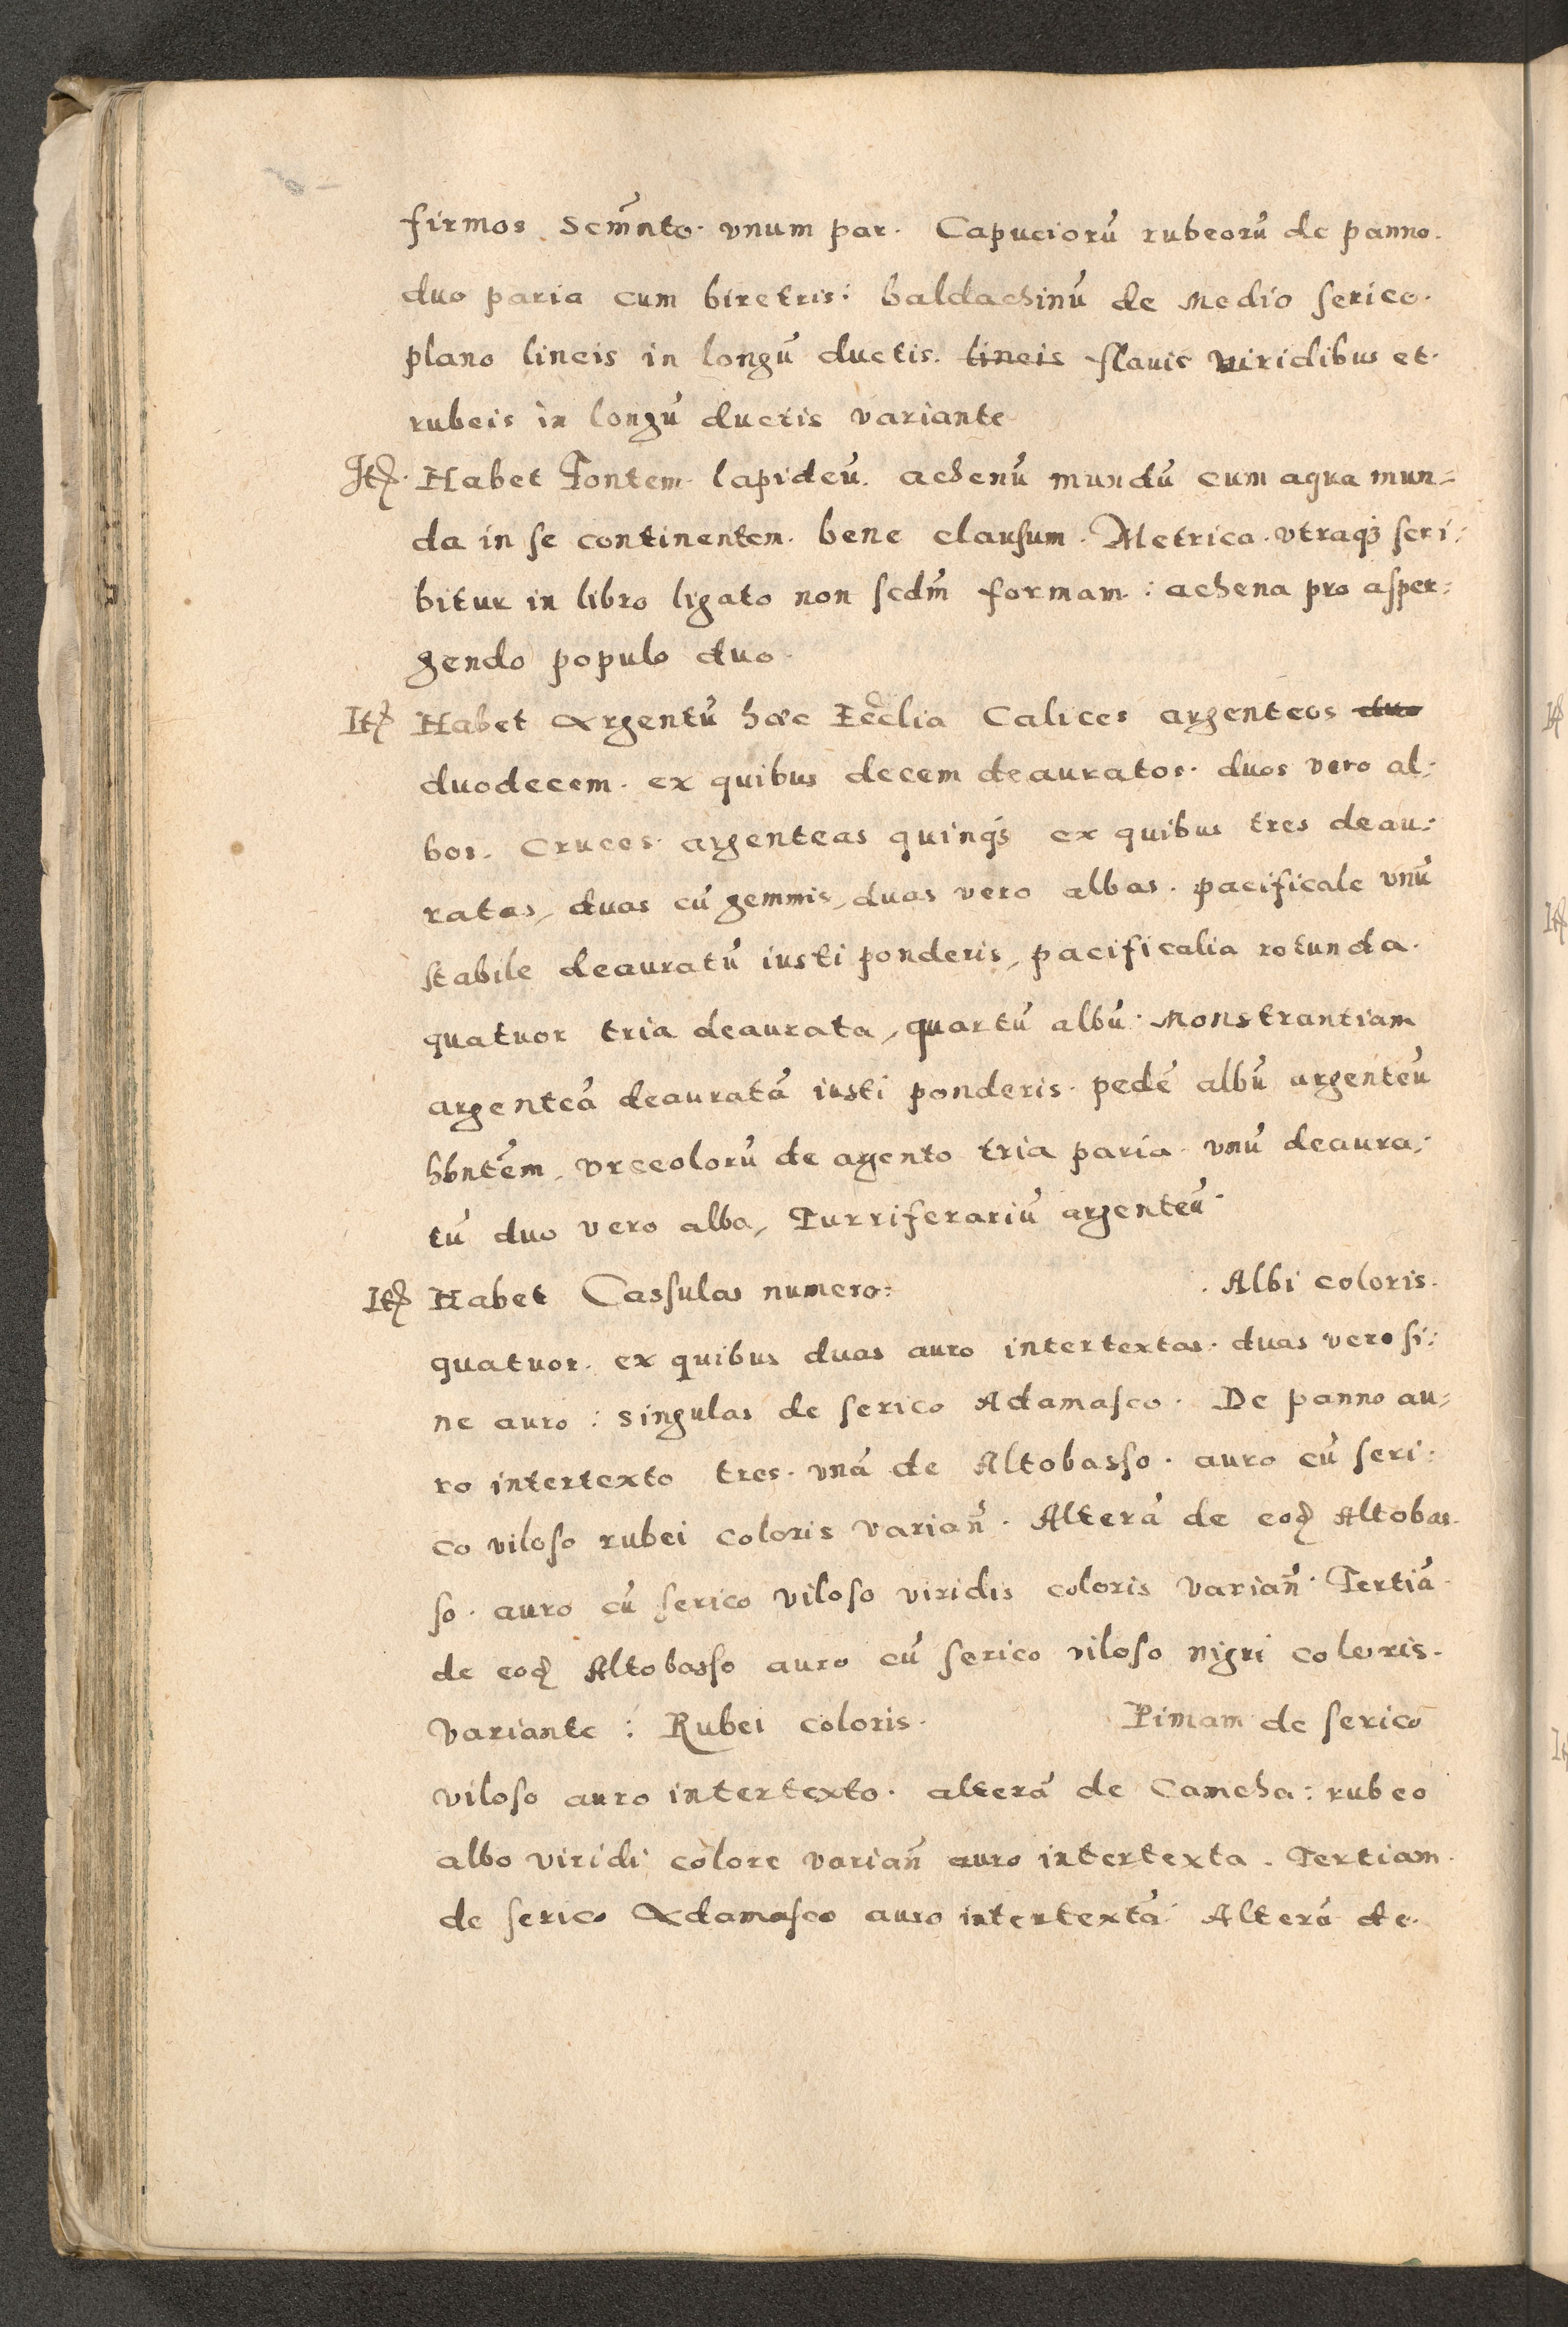 firmos Scm̃nto. vnum par. Capuciorũ rubeorũ de panno.
duo paria cum biretris: baldachinũ de Medio serico.
plano lineis in longũ ductis. lineis flauis viridibus et.
rubeis in longũ ductis variante
Itꝫ. Habet Fontem lapideũ. achenũ mundũ cum aqua mun=
da in se continentem. bene clausum. Metrica. vtraqꝫ scri:
bitur in libro ligato non scdm̃ formam: achena pro asper:
gendo populo duo.
Itꝫ Habet Argentũ hæc Ecclia Calices argenteos duo
duodecem. ex quibus decem deauratos. duos vero al:
bos. Cruces argenteas quinqꝫ ex quibus tres deau:
ratas, duas cũ gemmis, duas vero albas. pacificale vnũ
stabile deauratũ iusti ponderis, pacificalia rotunda.
quatuor tria deaurata, quartũ albũ. Monstrantiam
argenteã deauratã iusti ponderis. pedẽ albũ argenteũ
hbntẽm, vrceolorũ de agento tria paria. vnũ deaura:
tũ duo vero alba, Turriferariũ argenteũ.
Itꝫ Habet Cassulas numero: . Albi coloris.
quatuor. ex quibus duas auro intertextas. duas vero si:
ne auro: singulas de serico Adamasco. De panno au=
ro intertexto tres. vnã de Altobasso. auro cũ seri:
co viloso rubei coloris varian̄. Alterã de eodꝫ Altobas.
so. auro cũ serico viloso viridis coloris varian̄. Tertiã.
de eodꝫ Altobasso auro cũ serico viloso nigri coloris.
variante: Rubei coloris. Pimam de serico
viloso auro intertexto. alterã de Camcha: rubeo
albo viridi colore varian̄ auro intertexta. Tertiam.
de serico Adamasco auro intertextã Alterã de.